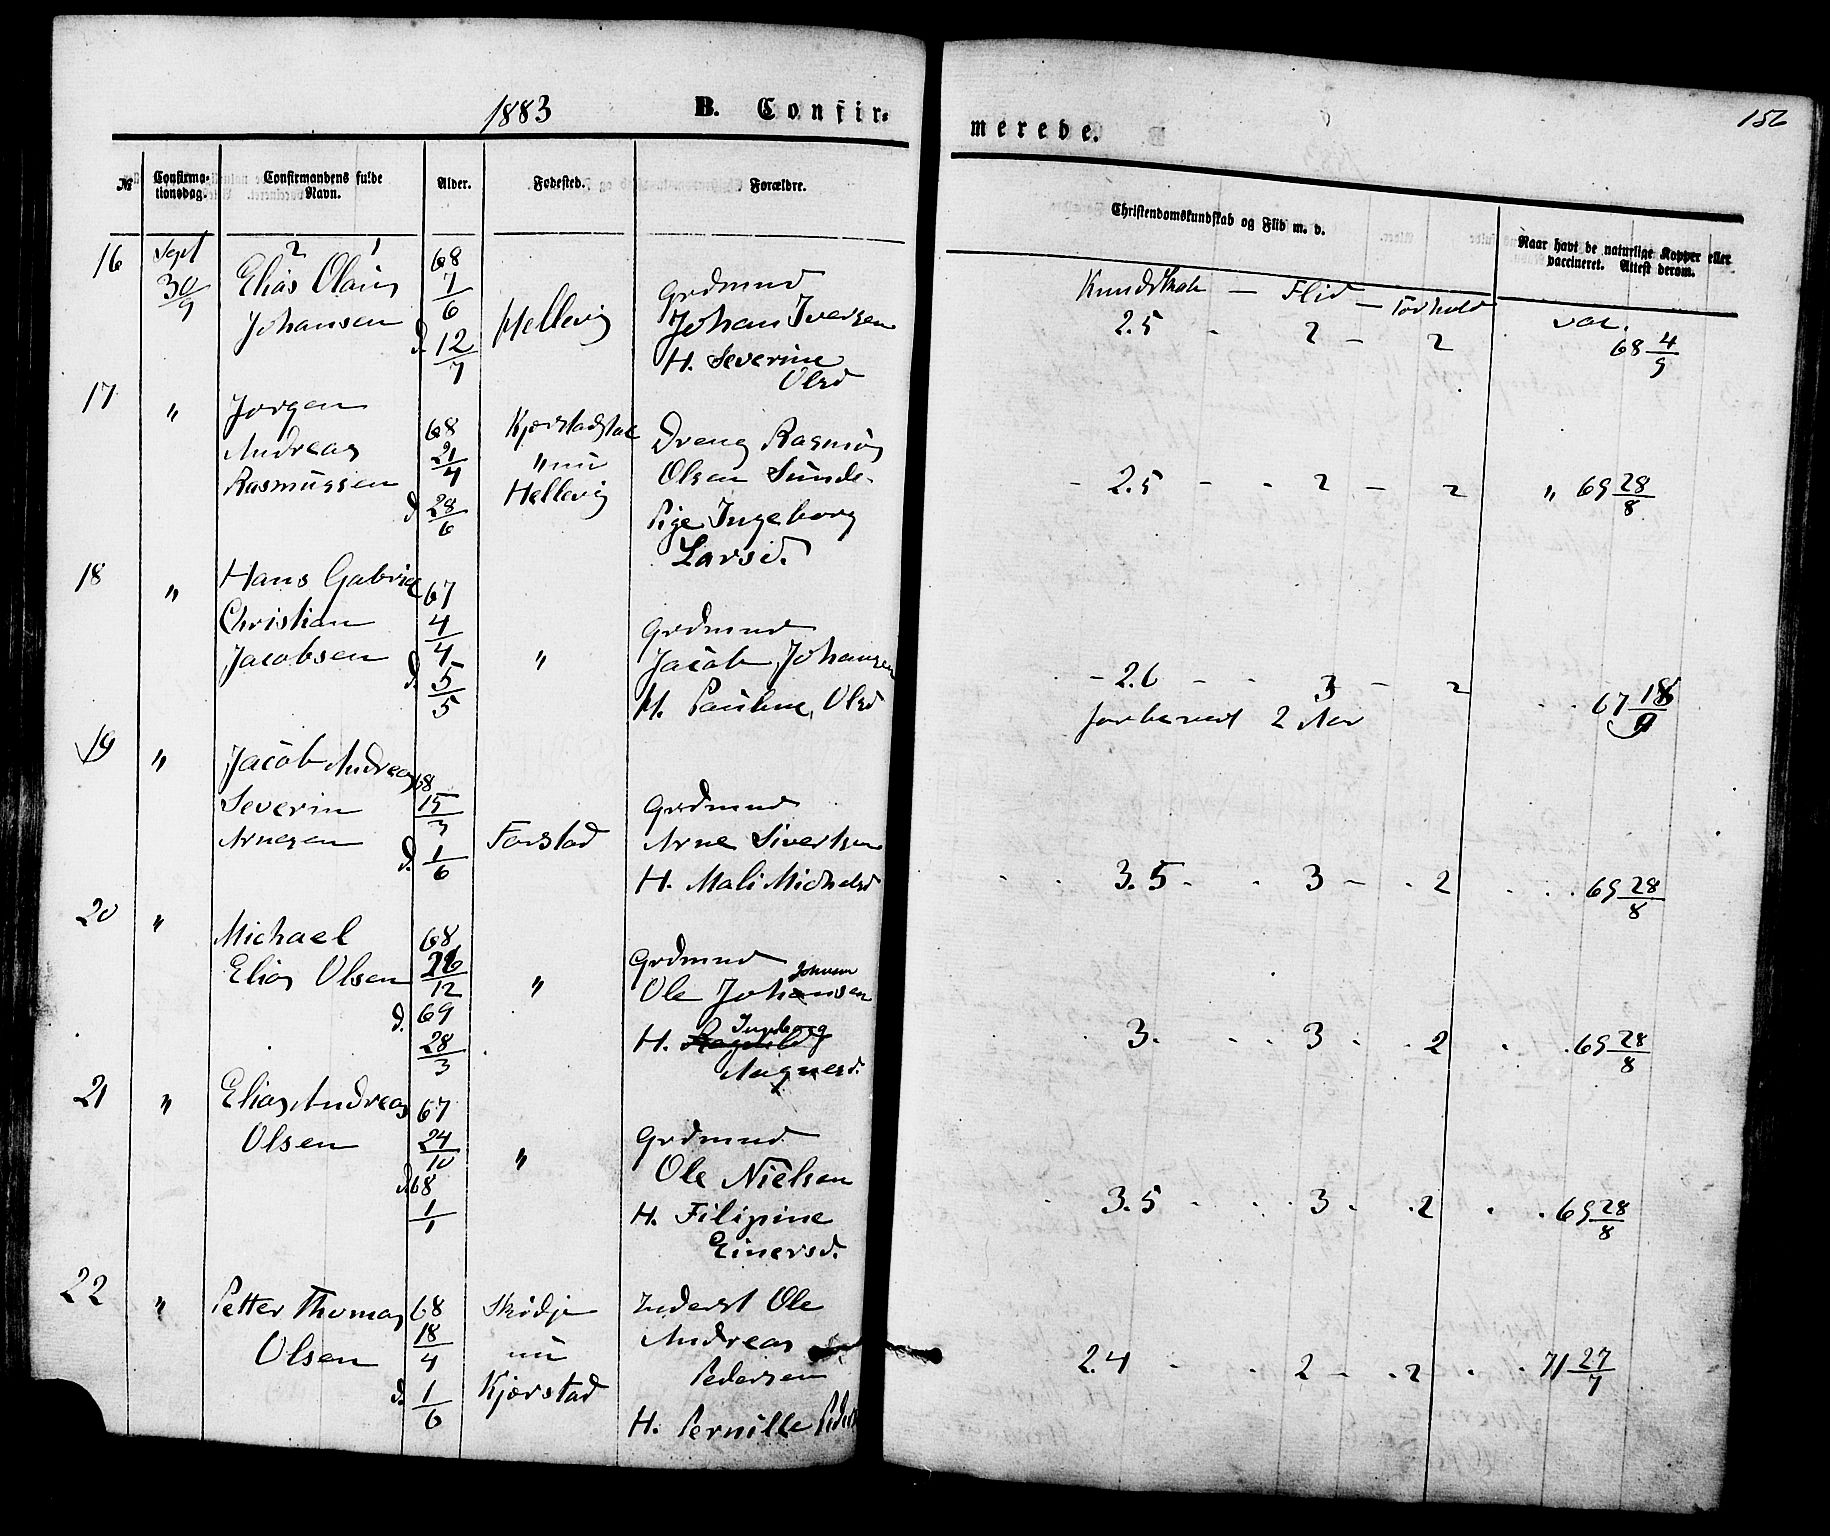 1883 B. Confir-
merede. 156
№ Confirmationsdag. Confirmandens fulde Navn. Alder. Fødested. Forældre.
Christendomskundskab og Flid m. v. Naar havt de naturlige Kopper eller vaccineret. Attest derom.
16 Sept 30/9
2 1
Elias Olaus
Johansen
68
7/6
d. 12/7
Hellevig
Grdmnd
Johan Iversen
H. Severine
Olsd
Kundskab – Flid – Forhold
2.5 - 2 – 2
vac.
68 4/9
17 "
Jørgen
Andreas
Rasmussen
68
21/4
d. 28/6
" nu
Hellevig
Dreng Rasmus
Olsen Sunde.
Pige Ingeborg
Larsd.
- 2.5 - - 2 – 2 " 69 28/8
18 "
Hans Gabriel
Christian
Jacobsen
67
4/4
d. 5/5
"
Grdmnd
Jacob Johansen
H. Pauline Olsd
- 2.6 - - 3 – 2
forberedt 2 Aar
67 18/9
19 "
Jacob Andreas
Severin
Arnesen
68
15/3
d. 1/6
Farstad
Grdmnd
Arne Sivertsen
H. Mali Michelsd
3.5 - - 3 – - 2 69 28/8
20 "
Michael
Elias Olsen
68
26/12
d. 69
28/3
"
Grdmnd
Johnsen
Ole Johansen
Ingeborg
H. Ragnild
Magnesd.
3. 3 2 69 28/8
21 "
Elias Andreas
Olsen
67
24/10
d. 68
1/1
"
Grdmnd
Ole Nielsen
H. Filipine
Einersd.
3.5 - - 3 - 2 69 28/8
22 "
Petter Thomas
Olsen
68
18/4
d. 1/6
Skodje
nu
Kjærstad
Inderst Ole
Andreas
Pedersen
H. Pernille
2.4 - - 2 – 2 71 27/7